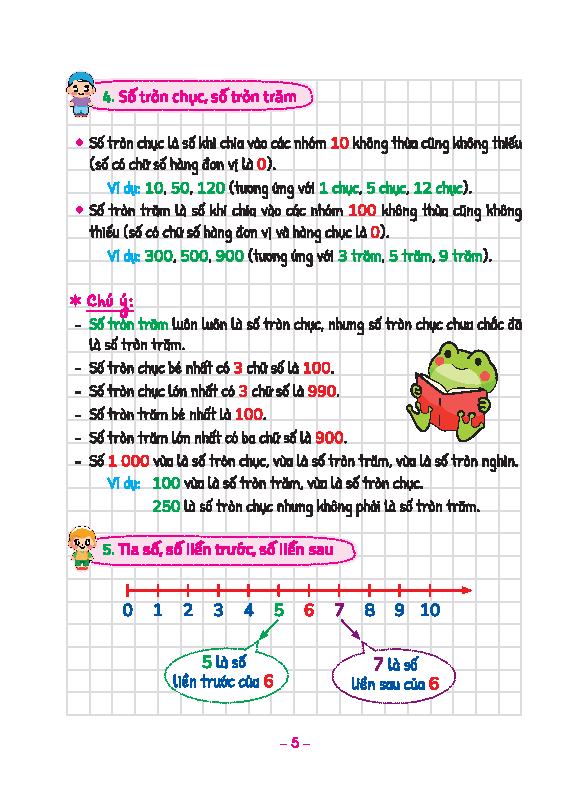 4. Số tròn chục, số tròn trăm
• Số tròn chục là số khi chia vào các nhóm 10 không thừa cũng không thiếu
(số có chữ số hàng đơn vị là 0).
Ví dụ: 10, 50, 120 (tương ứng với 1 chục, 5 chục, 12 chục).
• Số tròn trăm là số khi chia vào các nhóm 100 không thừa cũng không
thiếu (số có chữ số hàng đơn vị và hàng chục là 0).
Ví dụ: 300, 500, 900 (tương ứng với 3 trăm, 5 trăm, 9 trăm).
* Chú ý:
- Số tròn trăm luôn luôn là số tròn chục, nhưng số tròn chục chưa chắc đã
là số tròn trăm.
- Số tròn chục bé nhất có 3 chữ số là 100.
- Số tròn chục lớn nhất có 3 chữ số là 990.
- Số tròn trăm bé nhất là 100.
- Số tròn trăm lớn nhất có ba chữ số là 900.
- Số 1 000 vừa là số tròn chục, vừa là số tròn trăm, vừa là số tròn nghìn.
Ví dụ: 100 vừa là số tròn trăm, vừa là số tròn chục.
250 là số tròn chục nhưng không phải là số tròn trăm.
5. Tia số, số liền trước, số liền sau
0 1 2 3 4 5 6 7 8 9 10
5 là số
liền trước của 6
7 là số
liền sau của 6
– 5 –